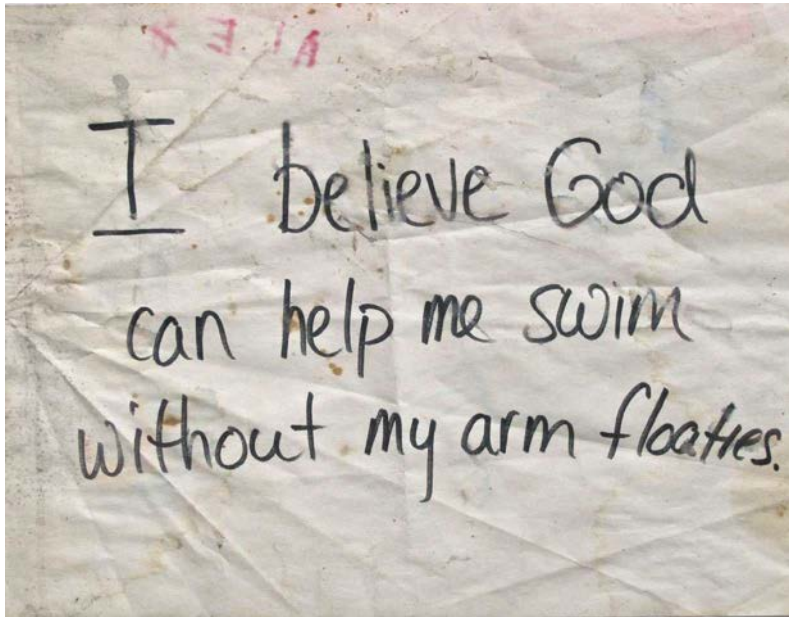 I believe God
can help me swim
without my arm floaties.